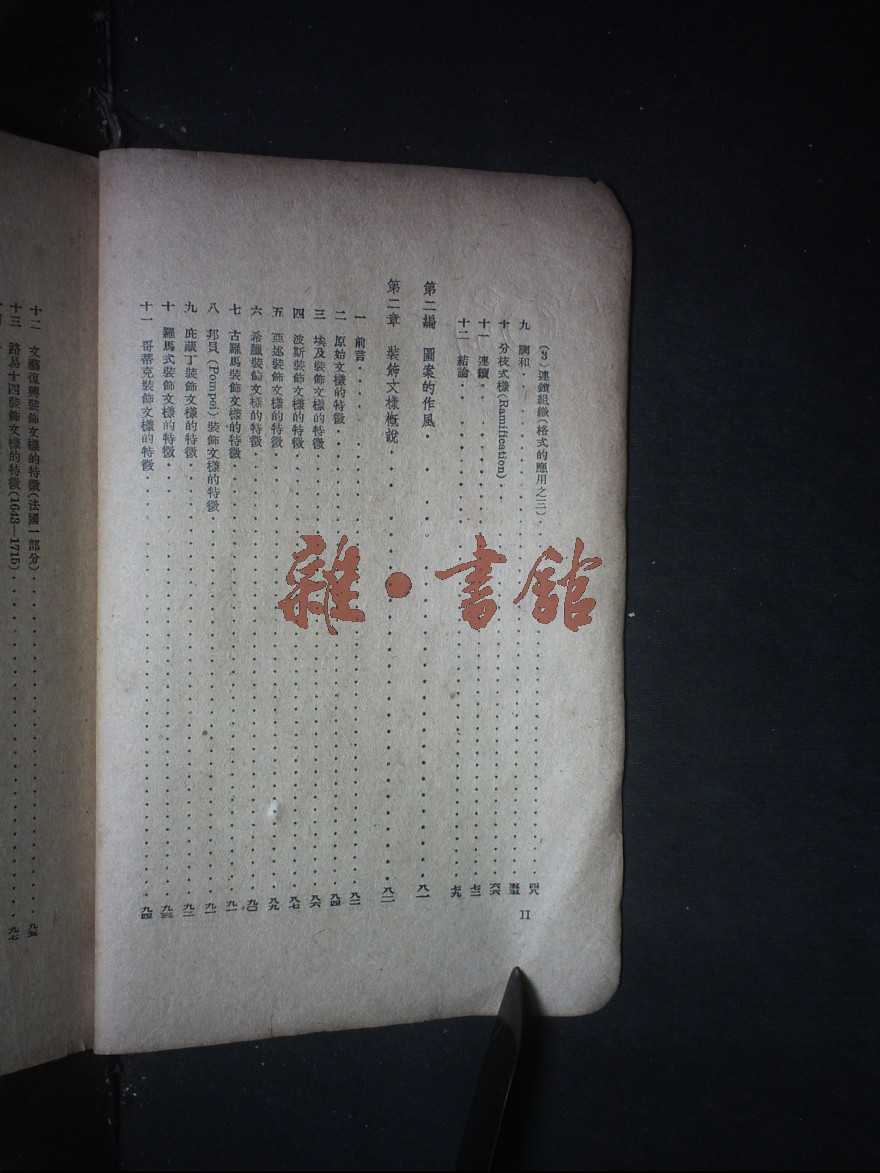 (3) 連鎖組織(格式的應用之三)····四八
九 調和····五五
十 分枝式樣(Ramification)····六六
十一 連續····七三
十二 結論····七九
第二編 圖案的作風····八一
第二章 裝飾文樣概說····八二
一 前言····八二
二 原始文樣的特徵····八四
三 埃及裝飾文樣的特徵····八六
四 波斯裝飾文樣的特徵····八七
五 亞述裝飾文樣的特徵····八九
六 希臘裝飾文樣的特徵····九〇
七 古羅馬裝飾文樣的特徵····九一
八 邦貝(Pompei)裝飾文樣的特徵····九一
九 庇蔽丁裝飾文樣的特徵····九二
十 羅馬式裝飾文樣的特徵····九三
十一 哥蒂克裝飾文樣的特徵····九四
II
十二 文藝復興裝飾文樣的特徵(法國一部分)····九五
十三 路易十四裝飾文樣的特徵(1643—1715)····九七
雜·書館